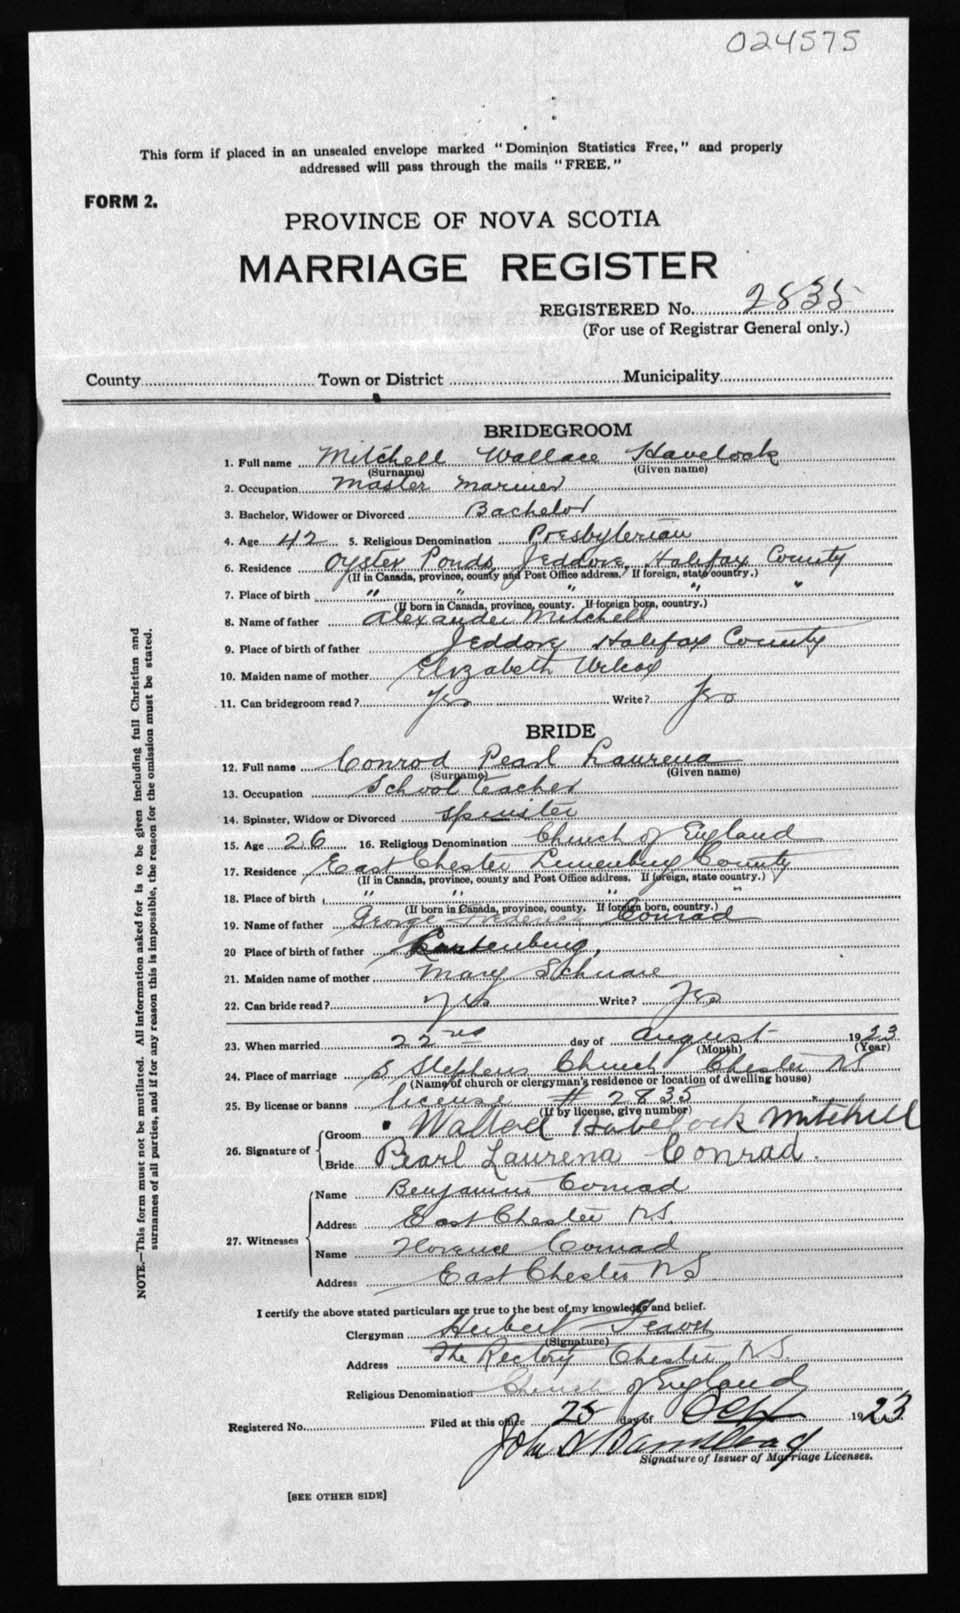 024575
This form if placed in an unsealed envelope marked "Dominion Statistics Free," and properly
addressed will pass through the mails "FREE."
FORM 2.
PROVINCE OF NOVA SCOTIA
MARRIAGE REGISTER
REGISTERED No. 2835
(For use of Registrar General only.)
County Town or District Municipality
BRIDEGROOM
1. Full name Mitchell Wallace Havelock
(Surname) (Given name)
2. Occupation Master Mariner
3. Bachelor, Widower or Divorced Bachelor
4. Age 42 5. Religious Denomination Presbyterian
6. Residence Oyster Ponds, Jeddore, Halifax County
(If in Canada, province, county and Post Office address. If foreign, state country.)
7. Place of birth " " " " "
(If born in Canada, province, county. If foreign born, country.)
8. Name of father Alexander Mitchell
9. Place of birth of father Jeddore, Halifax County
10. Maiden name of mother Elizabeth Wilcox
11. Can bridegroom read? Yes Write? Yes
BRIDE
12. Full name Conrod Pearl Laurena
(Surname) (Given name)
13. Occupation School Teacher
14. Spinster, Widow or Divorced Spinster
15. Age 26 16. Religious Denomination Church of England
17. Residence East Chester Lunenburg County
(If in Canada, province, county and Post Office address. If foreign, state country.)
18. Place of birth " " " "
(If born in Canada, province, county. If foreign born, country.)
19. Name of father George Frederick Conrad
20 Place of birth of father Lunenburg,
21. Maiden name of mother Mary Schnare
22. Can bride read? Yes Write? Yes
23. When married 22nd day of August 1923
(Month) (Year)
24. Place of marriage S Stephens Church Chester NS
(Name of church or clergyman's residence or location of dwelling house)
25. By license or banns license # 2835
(If by license, give number)
26. Signature of Groom Wallace Havelock Mitchell
Bride Pearl Laurena Conrad.
27. Witnesses Name Benjamin Conrad
Address East Chester N.S.
Name Florence Conrad
Address East Chester NS
I certify the above stated particulars are true to the best of my knowledge and belief.
Clergyman Herbert
(Signature)
Address The Rectory Chester, N.S.
Religious Denomination Church of England
Registered No. Filed at this office 25 day of 1923
John
Signature of Issuer of Marriage Licenses.
[SEE OTHER SIDE]
NOTE.—This form must not be mutilated. All information asked for is to be given including full Christian and
surnames of all parties, and if for any reason this is impossible, the reason for the omission must be stated.